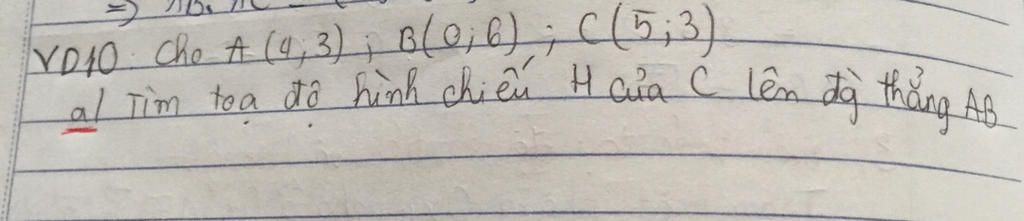 VD10. Cho A (4;3) ; B(0;6) ; C(5;3)
a/ Tìm toạ độ hình chiếu H của C lên đg thẳng AB